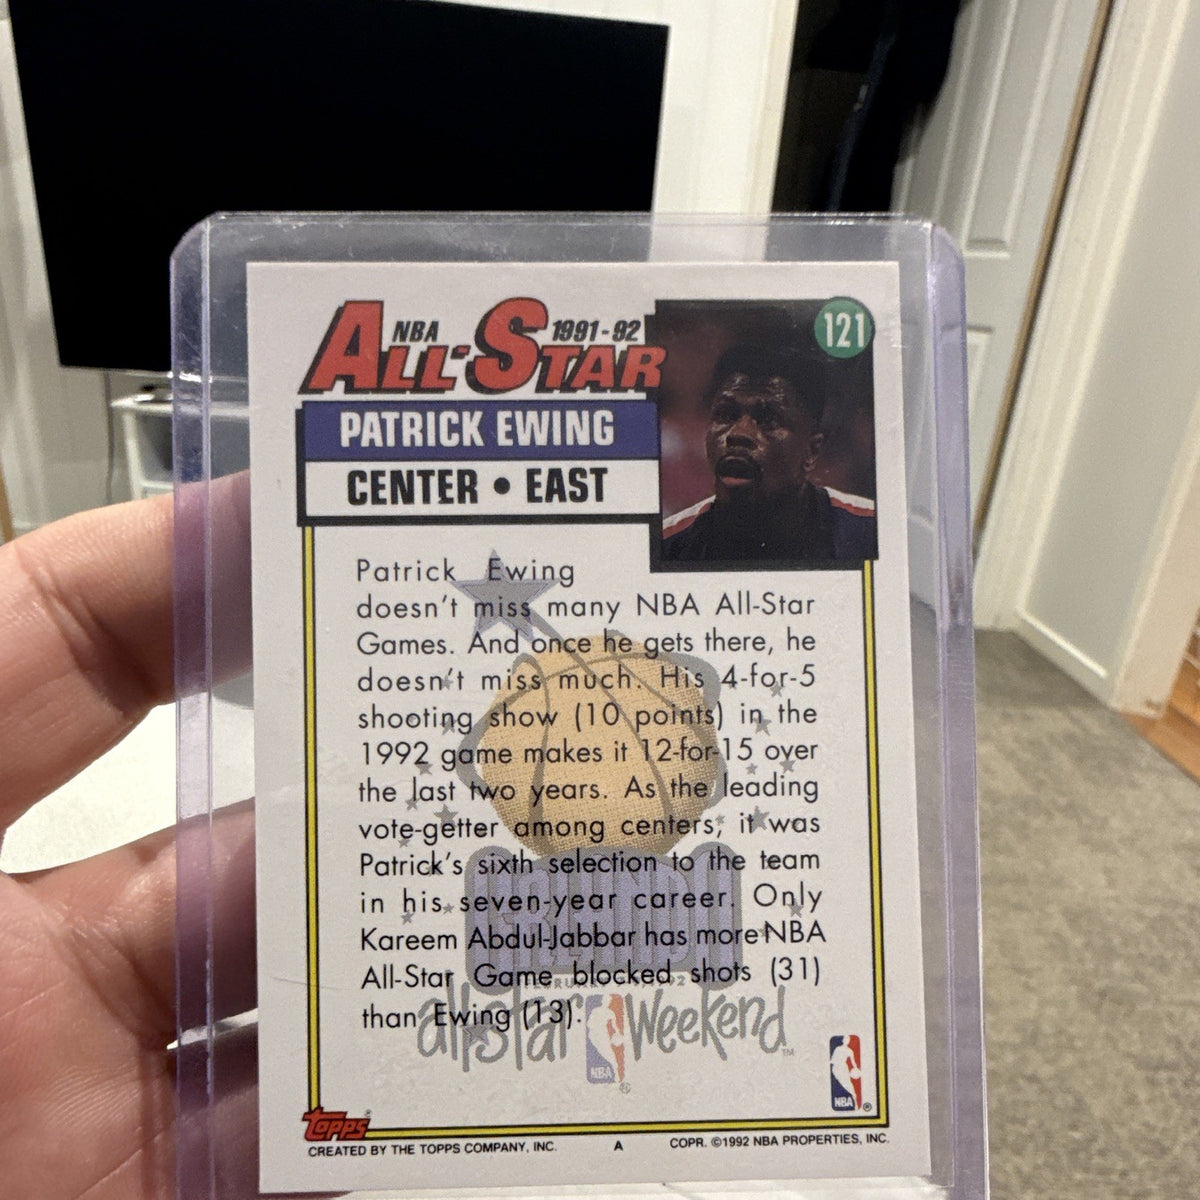 NBA 1991-92
ALL-STAR
121
PATRICK EWING
CENTER • EAST
Patrick Ewing
doesn't miss many NBA All-Star
Games. And once he gets there, he
doesn't miss much. His 4-for-5
shooting show (10 points) in the
1992 game makes it 12-for-15 over
the last two years. As the leading
vote-getter among centers, it was
Patrick's sixth selection to the team
in his seven-year career. Only
Kareem Abdul-Jabbar has more NBA
All-Star Game blocked shots (31)
than Ewing (13).
ORLANDO
all-star Weekend™
NBA ®
NBA ®
Topps ®
CREATED BY THE TOPPS COMPANY, INC. A COPR. ©1992 NBA PROPERTIES, INC.